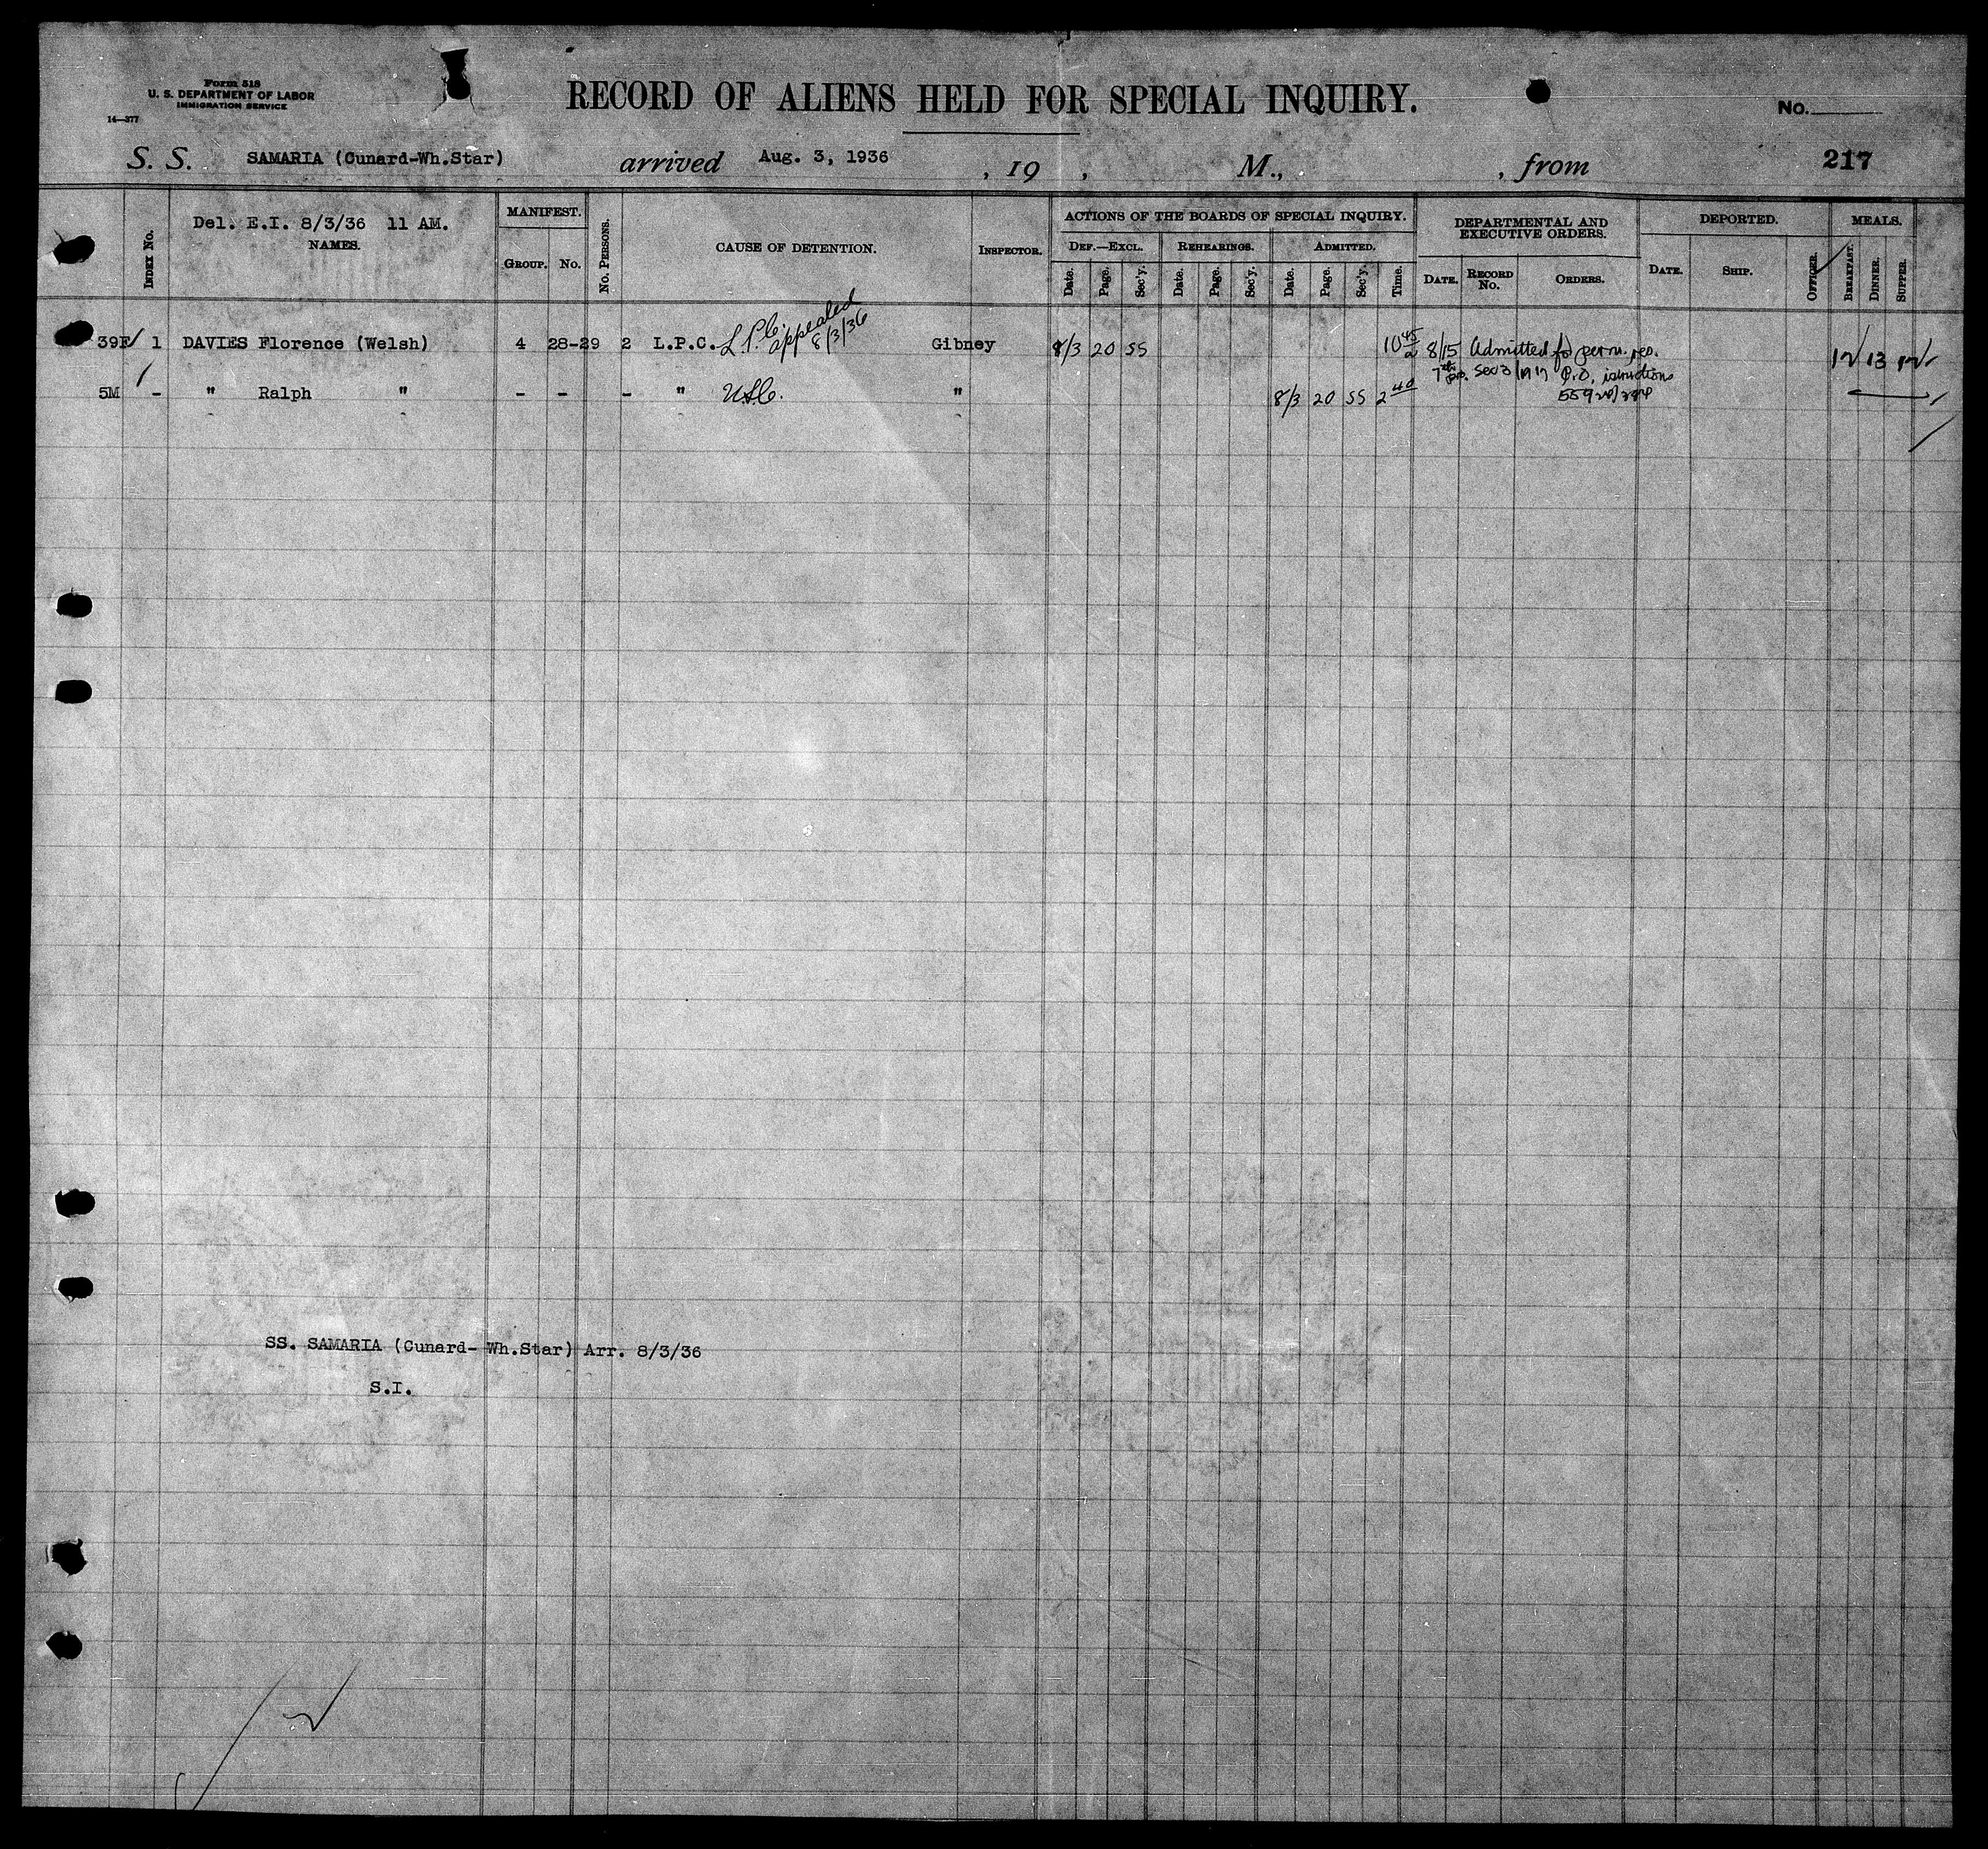 Form 518
U. S. DEPARTMENT OF LABOR
IMMIGRATION SERVICE
14—377
RECORD OF ALIENS HELD FOR SPECIAL INQUIRY.
No.
S. S. SAMARIA (Cunard-Wh.Star) arrived Aug. 3, 1936 , 19 , M., , from 217
Del. E.I. 8/3/36 11 AM.
INDEX No.
NAMES.
MANIFEST.
GROUP. No.
No. PERSONS.
CAUSE OF DETENTION.
INSPECTOR.
ACTIONS OF THE BOARDS OF SPECIAL INQUIRY.
DEF.—EXCL. REHEARINGS. ADMITTED.
Date. Page. Sec'y. Date. Page. Sec'y. Date. Page. Sec'y. Time.
DEPARTMENTAL AND
EXECUTIVE ORDERS.
DATE. RECORD No. ORDERS.
DEPORTED.
DATE. SHIP. OFFICER.
MEALS.
BREAKFAST. DINNER. SUPPER.
39F 1 DAVIES Florence (Welsh) 4 28-29 2 L.P.C. L.P.C. appealed 8/3/36 Gibney 8/3 20 SS 10 45 8/15 Admitted for perm. res. 12 13 12
Sec 3 1917 P.O. 
5M - " Ralph " - - - " U.S.C. " 8/3 20 SS 2 40
SS. SAMARIA (Cunard- Wh.Star) Arr. 8/3/36
S.I.